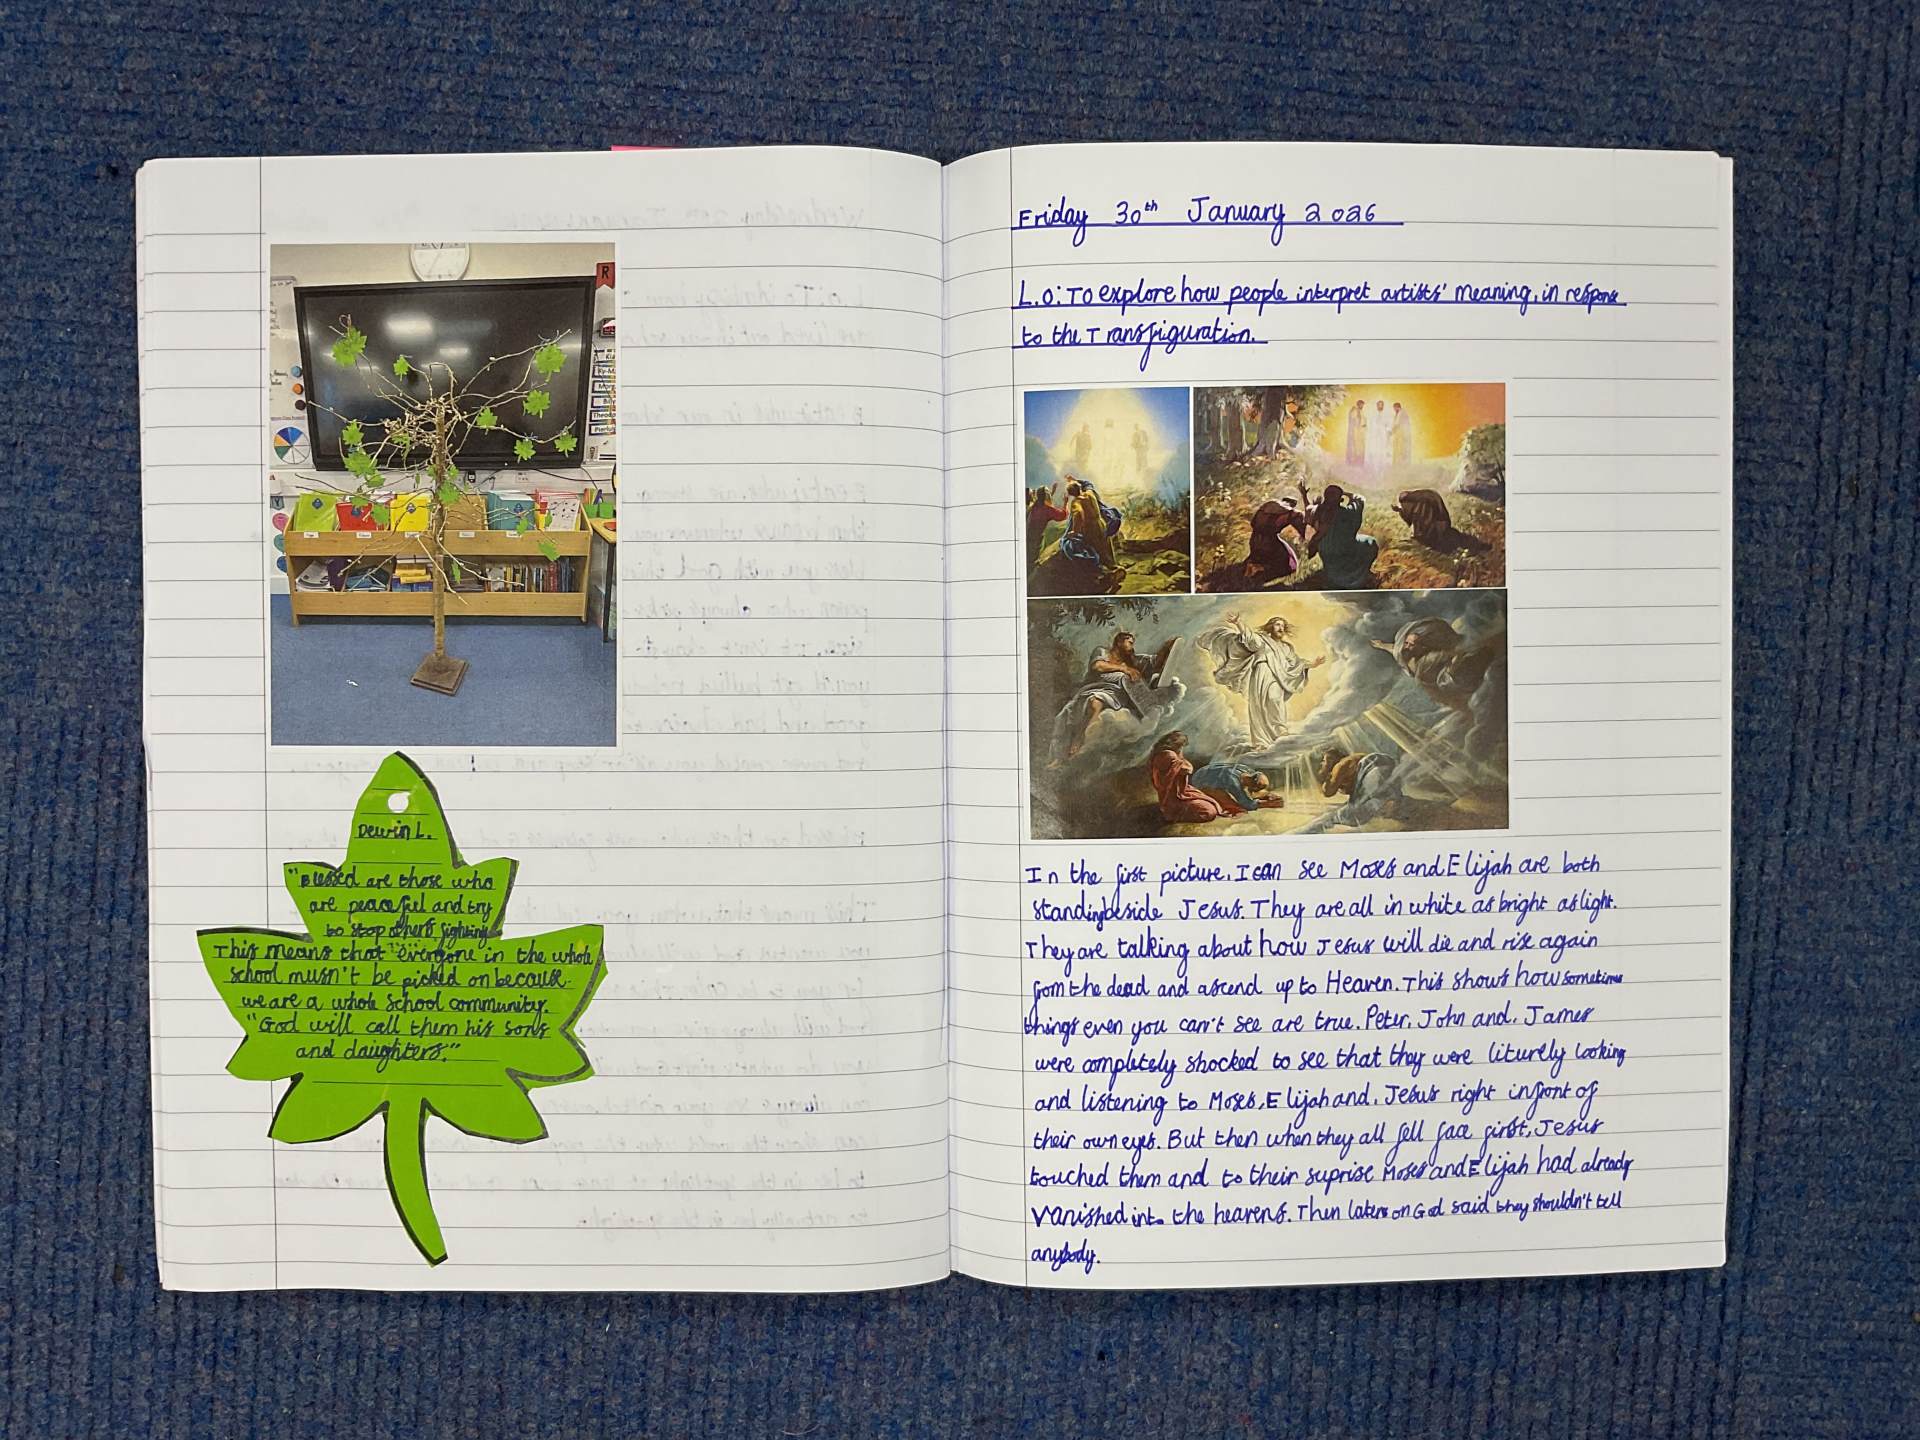 Dewin L.
"Blessed are those who
are peaceful and try
to stop others fighting
This means that "everyone in the whole
school musn't be picked on because
we are a whole school community.
"God will call them his sons
and daughters."
Friday 30th January 2026
L.O: To explore how people interpret artists' meaning, in response
to the Transfiguration.
In the first picture, I can see Moses and Elijah are both
standing beside Jesus. They are all in white as bright as light.
They are talking about how Jesus will die and rise again
from the dead and ascend up to Heaven. This shows how sometimes
things even you can't see are true. Peter, John and, James
were completely shocked to see that they were liturely looking
and listening to Moses, Elijah and, Jesus right infront of
their own eyes. But then when they all fell face first, Jesus
touched them and to their suprise Moses and Elijah had already
vanished into the heavens. Then laters on God said they shouldn't tell
anybody.